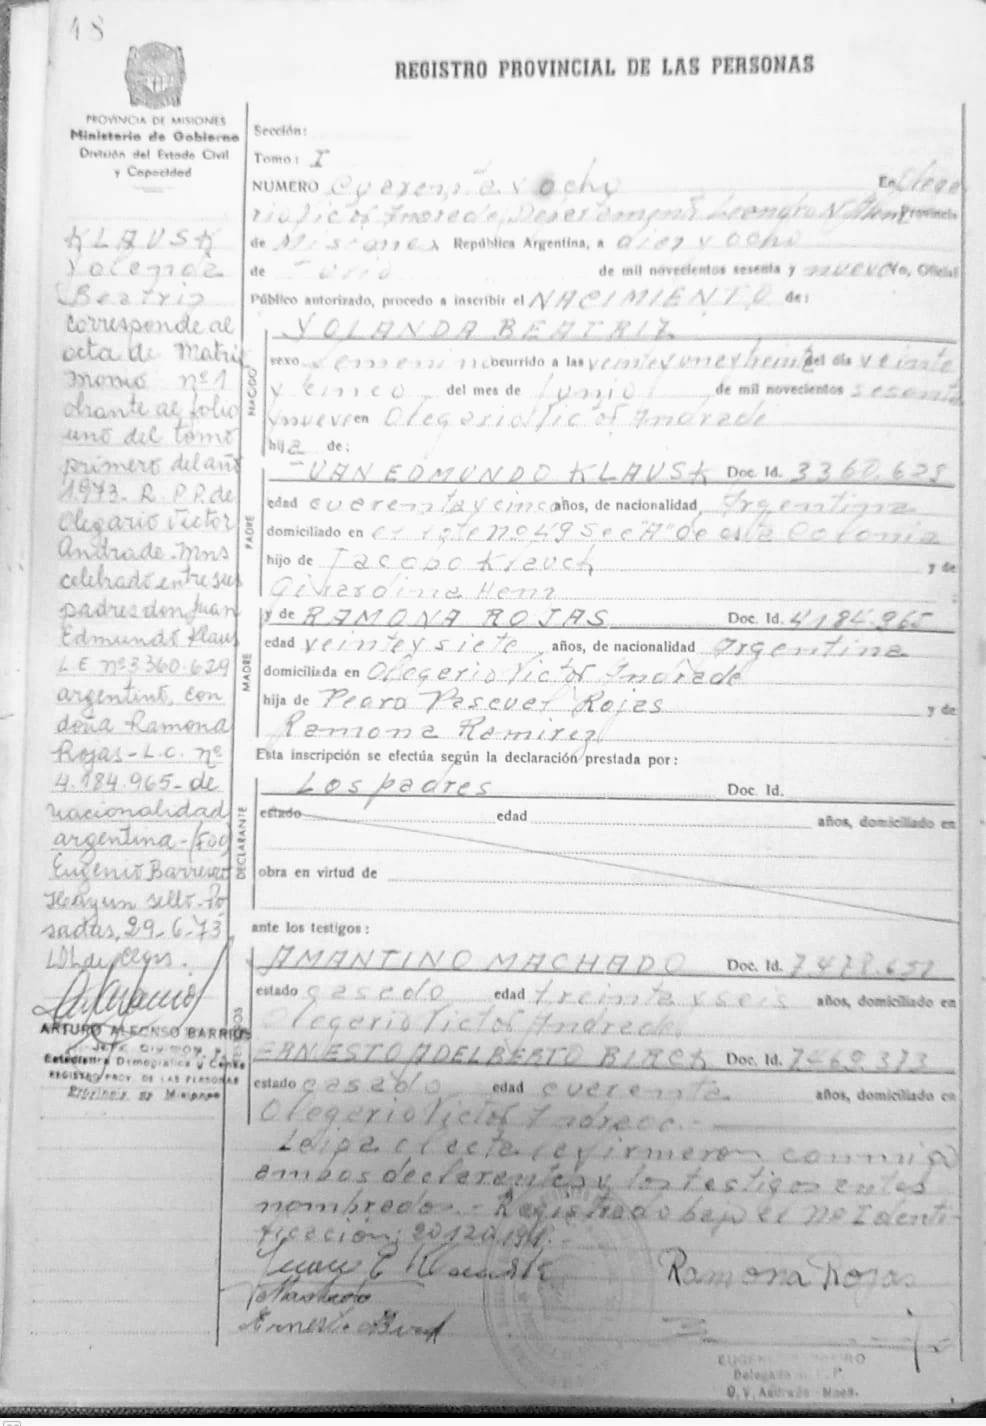 18
PROVINCIA DE MISIONES
Ministerio de Gobierno
División del Estado Civil
y Capacidad
KLAUSK
Yolanda
Beatriz
corresponde al
acta de Matri
monio nº 1
obrante al folio
uno del tomo
primero del año
1973- R. P. P. de
Olegario Víctor
Andrade- Mns
celebrado entre sus
padres don Juan
Edmundo Klaus
L.E nº 3360.629
argentino, con
doña Ramona
Rojas- L.C. nº
4.184.965- de
nacionalidad
argentina- (Fdo)
Eugenio Barreiro
Hay un sello- Po
sadas, 29-6-73
ARTURO ALFONSO BARRIOS
Estadística Demográfica y
REGISTRO PROV. DE LAS PERSONAS
REGISTRO PROVINCIAL DE LAS PERSONAS
Sección:
Tomo: I
NUMERO Cuarenta y ocho En Olega
rio Víctor Andrade, Departamento Leandro N. Alem Provincia
de Misiones República Argentina, a diez y ocho
de Julio de mil novecientos sesenta y nueve Yo, Oficial
Público autorizado, procedo a inscribir el NACIMIENTO de:
NACIDO
YOLANDA BEATRIZ
sexo Femenino ocurrido a las veinte y una y treinta del día veinte
y cinco del mes de Junio de mil novecientos sesenta
y nueve en Olegario Víctor Andrade
hija de:
PADRE
JUAN EDMUNDO KLAUSK Doc. Id. 3360.629
edad cuarenta y cinco años, de nacionalidad Argentina
domiciliado en el lote No 49 Sec "A" de esta Colonia
hijo de Jacobo Klauck y de
Girardina Henz
MADRE
y de RAMONA ROJAS Doc. Id. 4184.965
edad veinte y siete años, de nacionalidad Argentina
domiciliada en Olegario Víctor Andrade
hija de Pedro Pascual Rojas y de
Ramona Ramirez
Esta inscripción se efectúa según la declaración prestada por:
DECLARANTE
Los padres Doc. Id.
estado edad años, domiciliado en
obra en virtud de
ante los testigos:
AMANTINO MACHADO Doc. Id.
estado casado edad treinta y seis años, domiciliado en
Olegario Víctor Andrade
ERNESTO ADELBERTO BIRCK Doc. Id. 7469.373
estado casado edad cuarenta años, domiciliado en
Olegario Víctor Andrade.-
Leída el acta la firmaron conmigo
ambos declarantes y los testigos antes
nombrados.- Registrado bajo el No Identi-
ficación:
Juan E Klauusk
Ramona Rojas
Machado
Ernesto Birck
Delegado
O. V. Andrade - Mnes.